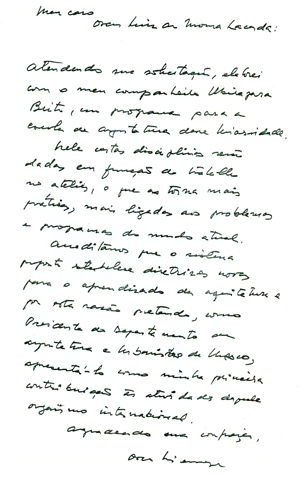 Meu caro
Oscar Luiz de Moura Lacerda:
Atendendo sua solicitação, elaborei
com o meu companheiro
Brito, um programa para a
escola de arquitetura dessa Universidade.
Nele certas disciplinas serão
dadas em função do trabalho
no atelier, o que as torna mais
práticas, mais ligadas aos problemas
e programas do mundo atual.
Acreditamos que o sistema
proposto estabelece diretrizes novas
para o aprendizado da arquitetura e
por esta razão pretendo, como
Presidente do Departamento de
arquitetura e Urbanismo da Unesco,
apresentá-lo como minha primeira
contribuição às atividades daquele
organismo internacional.
Agradecendo sua confiança,
Oscar Niemeyer